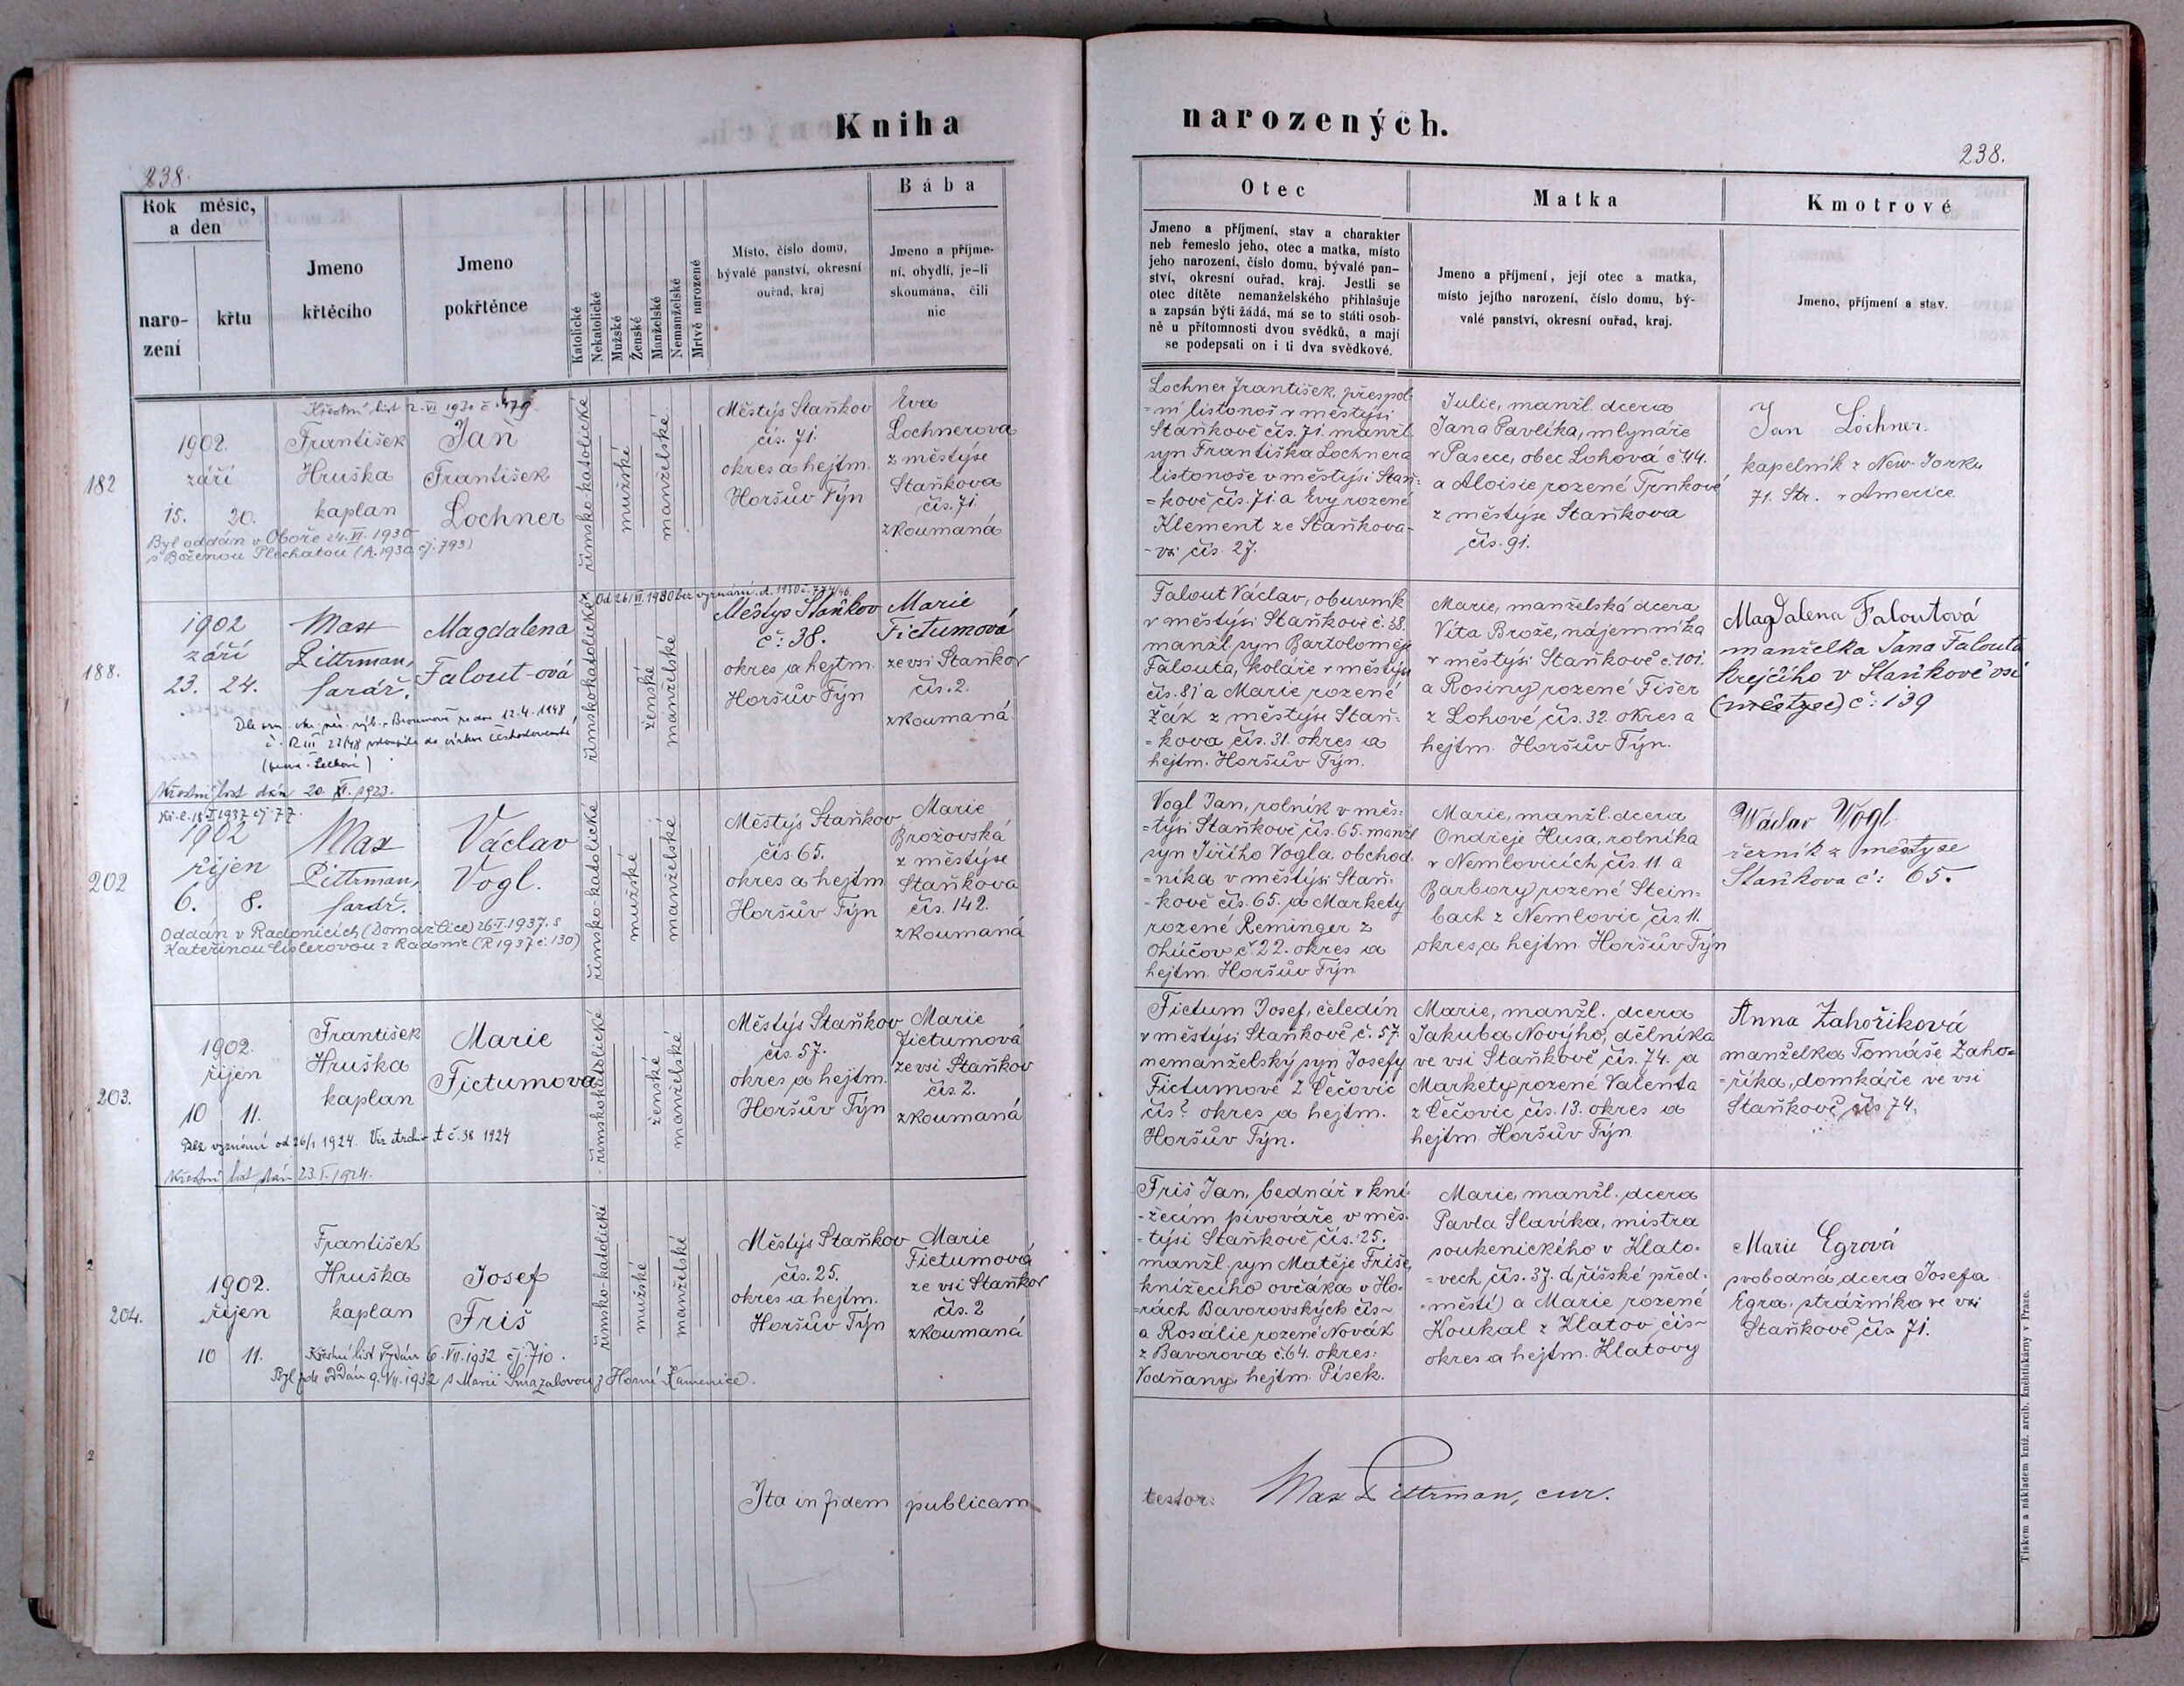 Kniha
narozených.
238.
238.
Rok měsíc,
a den
naro-
zení
křtu
Jmeno
křtěcího
Jmeno
pokřtěnce
Katolické
Nekatolické
Mužské
Ženské
Manželské
Nemanželské
Mrtvě narozené
Místo, číslo domu,
bývalé panství, okresní
ouřad, kraj
Bába
Jmeno a příjme-
ní, obydlí, je-li
skoumána, čili
nic
Otec
Jmeno a příjmení, stav a charakter
neb řemeslo jeho, otec a matka, místo
jeho narození, číslo domu, bývalé pan-
ství, okresní ouřad, kraj. Jestli se
otec dítěte nemanželského přihlašuje
a zapsán býti žádá, má se to státi osob-
ně u přítomnosti dvou svědků, a mají
se podepsati on i ti dva svědkové.
Matka
Jmeno a příjmení, její otec a matka,
místo jejího narození, číslo domu, bý-
valé panství, okresní ouřad, kraj.
Kmotrové
Jmeno, příjmení a stav.
182
Křestní list 2. VI 1930 č. 479.
1902.
září
15. 20.
František
Hruška
kaplan
Jan
František
Lochner
Byl oddán v Oboře 24. VI. 1930
s Boženou Plechatou (A. 1930 čj. 793)
římsko katolické
mužské
manželské
Městýs Staňkov
čís. 71.
okres a hejtm.
Horšův Týn
Eva
Lochnerova
z městýse
Staňkova
čís. 71
zkoumaná
Lochner František, přespol-
=ní listonoš v městýsi
Staňkově čís. 71. manžl.
syn Františka Lochnera
listonoše v městýsi Staň-
=kově čís. 71. a Evy rozené
Klement ze Staňkova-
-vsi čís. 27.
Julie, manžl. dcera
Jana Pavlíka, mlynáře
v Pasece, obec Lohová č. 44.
a Aloisie rozené Trnkové
z městýse Staňkova
čís. 91.
Jan Lochner
kapelník z New-Yorku
71. Str. v Americe
188.
Od 26/VI. 1930 bez vyznání. A. 1930 č. 774/46.
1902
září
23. 24.
Max
Pittrman,
farář.
Magdalena
Falout-ová
Křestní list dán 20. XI. 1923.
římskokatolické
ženské
manželské
Městys Staňkov
č: 38.
okres a hejtm.
Horšův Týn
Marie
Fictumová
ze vsi Staňkov
čís. 2.
zkoumaná
Falout Václav, obuvník
v městýsi Staňkově č. 38.
manžl. syn Bartoloměje
Falouta, koláře v městýsi
čís. 81 a Marie rozené
Žák z městýse Staň-
=kova čís. 31. okres a
hejtm. Horšův Týn.
Marie, manželská dcera
Víta Brože, nájemníka
v městýsi Staňkově č. 101.
a Rosiny rozené Fišer
z Lohové čís. 32. okres a
hejtm. Horšův Týn.
Magdalena Faloutová
manželka Jana Falouta
krejčího v Staňkově vsi
(městyse) č: 139
202
Kř. l. 18. I 1937 čj. 77.
1902
říjen
6. 8.
Max
Pittrman,
farář.
Václav
Vogl.
Oddán v Radonicích (Domažlice) 26. I. 1937. s
Kateřinou Cislerovou z Radonic (R 1937 č. 130)
římsko-katolické
mužské
manželské
Městýs Staňkov
čís. 65.
okres a hejtm
Horšův Týn
Marie
Brožovská
z městýse
Staňkova
čís. 142.
zkoumaná
Vogl Jan, rolník v měs-
=týsi Staňkově čís. 65. manžl
syn Jiřího Vogla, obchod-
=níka v městýsi Staň-
-kově čís. 65. a Markety
rozené Reminger z
Ohúčov č. 22. okres a
hejtm. Horšův Týn
Marie, manžl. dcera
Ondřeje Husa, rolníka
v Nemlovicích čís. 11. a
Barbory rozené Stein-
bach z Nemlovic čís 11.
okres a hejtm Horšův Týn
Wáclav Vogl.
řezník z městyse
Staňkova č: 65.
203.
1902.
říjen
10 11.
František
Hruška
kaplan
Marie
Fictumova
Bez vyznání od 26/1 1924. Viz Archiv A č. 38 1924
Křestní list dán 23. I. 1924.
římskokatolické
ženské
manželské
Městýs Staňkov
čís. 57.
okres a hejtm.
Horšův Týn
Marie
Fictumová
ze vsi Staňkov
čís. 2.
zkoumaná
Fictum Josef, čeledín
v městýsi Staňkově č. 57.
nemanželský syn Josefy
Fictumové z Čečovic
čís? okres a hejtm.
Horšův Týn.
Marie, manžl. dcera
Jakuba Nového, dělníka
ve vsi Staňkově čís. 74. a
Markety rozené Valenta
z Čečovic čís. 13. okres a
hejtm. Horšův Týn
Anna Zahoříková
manželka Tomáše Zaho=
=říka, domkáře ve vsi
Staňkově čís 74.
204.
1902.
říjen
10 11.
František
Hruška
kaplan
Josef
Friš
Křestní list vydán 6. VII. 1932 čj. 710.
Byl zde oddán 9. VII. 1932 s Marií Smazalovou z Horní Kamenice.
římsko-katolické
mužské
manželské
Městýs Staňkov
čís. 25.
okres a hejtm.
Horšův Týn
Marie
Fictumová
ze vsi Staňkov
čís. 2
zkoumaná
Friš Jan, bednář v kní-
-žecím pivováře v měs-
-týsi Staňkově čís. 25.
manžl. syn Matěje Friše,
knížecího ovčáka v Ho-
=rách Bavorovských čís~
a Rosálie rozené Novák
z Bavorova č. 64. okres:
Vodňany, hejtm. Písek.
Marie, manžl. dcera
Pavla Slavíka, mistra
soukenického v Klato-
=vech čís. 37. d (říšské před-
=městí) a Marie rozené
Koukal z Klatov čís~
okres a hejtm. Klatovy
Marie Egrová
svobodná dcera Josefa
Egra strážníka ve vsi
Staňkově čís 71.
Ita in fidem publicam
testor: Max Pittrman, cur.
Tiskem a nákladem kníž. arcib. knihtiskárny v Praze.